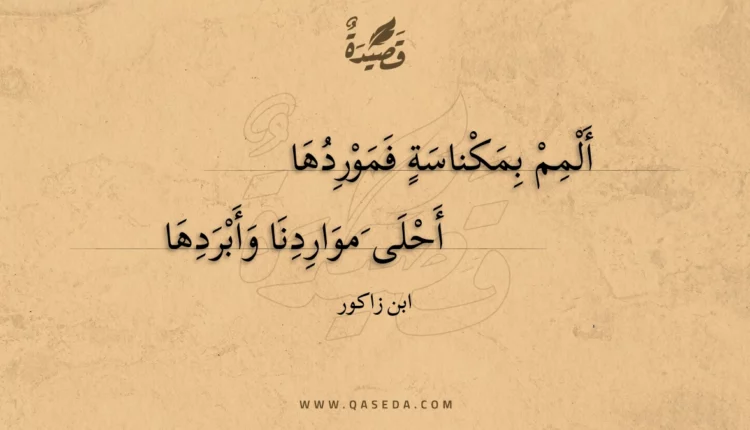 قَصِيْدَةٌ
أَلْمِمْ بِمَكْناسَةٍ فَمَوْرِدُهَا
أَحْلَى مَوَارِدِنَا وَأَبْرَدِهَا
ابن زاكور
WWW.QASEDA.COM